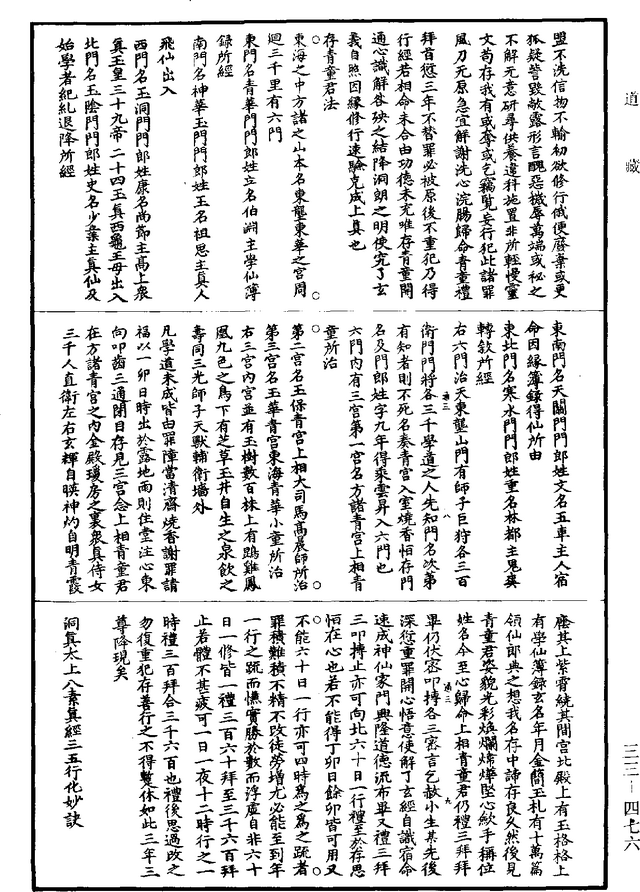 道藏
盟不洗信物不輸初欲修行俄便廢棄或更
狐疑訾毀敵露形言醜惡機辱萬端或秘之
不解无意研尋供養違科施置非所輕慢靈
文苟存我有或牽或乞竊覽妄行犯此諸罪
風刀无原急宜解謝洗心浣腸歸命青童禮
拜首愆三年不替罪必被原後不重犯乃得
行經若相命未合由功德未充唯存青童開
通心識解咎殃之結降洞朗之明使究了玄
義自照因緣修行速驗克成上真也
存青童君法
東海之中方諸之山本名東壟東華之宮周
迴三千里有六門
東門名青華門門郎姓立名伯淵主學仙簿
錄所經
南門名神華玉門門郎姓王名祖思主真人
飛仙出入
西門名玉洞門門郎姓康名尚節主高上眾
真玉皇三十九帝二十四玉真西龜王母出入
北門名玉陰門門郎姓史名少葉主真仙及
始學者紀糺退降所經
東南門名天關門門郎姓文名五車主人宿
命因緣簿錄得仙所由
東北門名寒水門門郎姓重名林都主鬼炁
轉欽所經
右六門治天東壟山門有師子巨狩各三百
衛門門將各三千學道之人先知門名次第
有知者則不死名奏青宮入室燒香恒存門
名及門郎姓字九年得乘雲昇入六門也
六門內有三宮第一宮名方諸青宮上相青
童所治
第二宮名玉保青宮上相大司馬高晨師所治
第三宮名玉華青宮東海青華小童所治
右三宮內宮並有玉樹數百株上有鵾雞鳳
凰九色之鳥下有芝草玉井自生之泉飲之
壽同三光師子天獸輔衛墻外
凡學道未成皆由罪障當清齋燒香謝罪請
福以一卯日時出於露地雨則住堂注心東
向叩齒三通閉目存見三宮念上相青童君
在方諸青宮之內金殿瓊房之裏眾真侍女
三千人直衛左右玄輝自暎神灼自明青霞
座其上紫霄繞其間宮北殿上有玉格格上
有學仙簿錄玄名年月金簡玉札有十萬篇
領仙郎典之想我名存中諦存良久然後見
青童君姿貌光彩煥爛煒燁堅心歛手稱位
姓名今至心歸命上相青童君仍禮三拜拜
畢仍伏密叩搏各三密言乞赦小生某先後
深愆重罪開心悟意使解了玄經自識宿命
速成神仙家門興隆道德流布畢又禮三拜
三叩搏止亦可向北六十日一行禮至於存思
恒在心也若不能得丁卯日餘卯皆可用又
不能六十日一行亦可四時為之為之疏者
罪積難積不精不改徒勞增尤必能至到年
一行之疏而憔實勝於數而浮虛自非六十
日一修皆一禮三百六十拜至三千六百拜
止若體不甚疲可一日一夜十二時行之一
時禮三百拜合三千六百也禮後思過改之
勿復重犯存善行之不得蹔休如此三年三
尊降現矣
洞真太上八素真經三五行化妙訣
三三—四七六